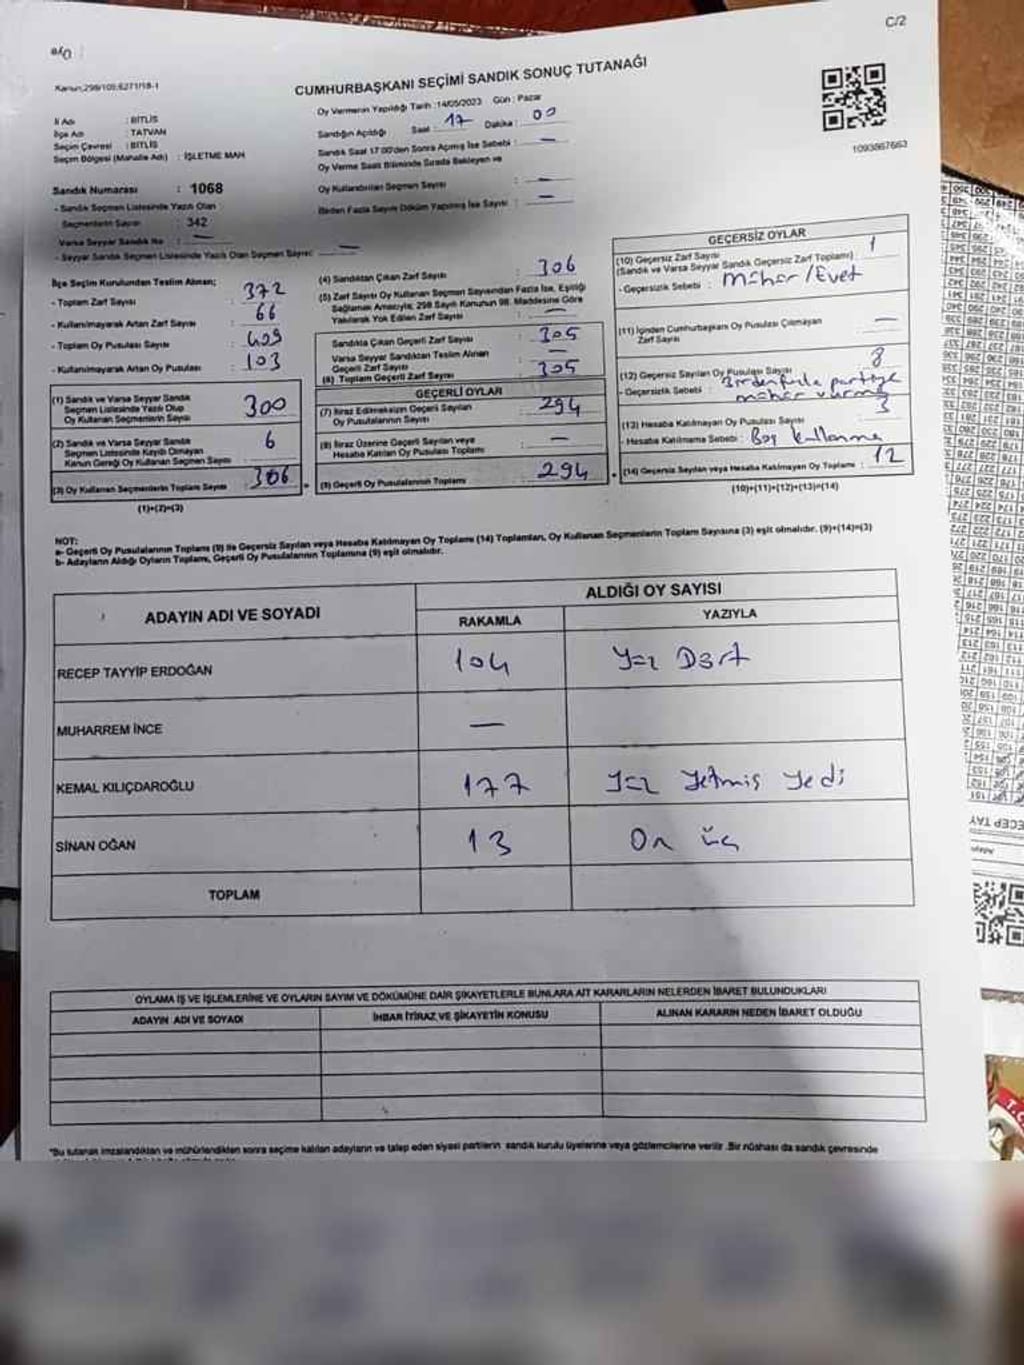 C/2
Kanun;298/105;6271/18-1
CUMHURBAŞKANI SEÇİMİ SANDIK SONUÇ TUTANAĞI
Oy Vermenin Yapıldığı Tarih :14/05/2023 Gün : Pazar
Sandığın Açıldığı Saat : 17 Dakika : 00
Sandık Saat 17:00'den Sonra Açılmış İse Sebebi : —
Oy Verme Saati Bitiminde Sırada Bekleyen ve
Oy Kullandırılan Seçmen Sayısı : —
Birden Fazla Sayım Döküm Yapılmış İse Sayısı : —
1093867663
İl Adı : BİTLİS
İlçe Adı : TATVAN
Seçim Çevresi : BİTLİS
Seçim Bölgesi (Mahalle Adı) : İŞLETME MAH
Sandık Numarası : 1068
- Sandık Seçmen Listesinde Yazılı Olan
Seçmenlerin Sayısı : 342
Varsa Seyyar Sandık No : —
- Seyyar Sandık Seçmen Listesinde Yazılı Olan Seçmen Sayısı: —
İlçe Seçim Kurulundan Teslim Alınan;
- Toplam Zarf Sayısı : 372
- Kullanılmayarak Artan Zarf Sayısı : 66
- Toplam Oy Pusulası Sayısı : 409
- Kullanılmayarak Artan Oy Pusulası : 103
(1) Sandık ve Varsa Seyyar Sandık
Seçmen Listesinde Yazılı Olup
Oy Kullanan Seçmenlerin Sayısı : 300
(2) Sandık ve Varsa Seyyar Sandık
Seçmen Listesinde Kayıtlı Olmayan
Kanun Gereği Oy Kullanan Seçmen Sayısı : 6
(3) Oy Kullanan Seçmenlerin Toplam Sayısı : 306
(1)+(2)=(3)
(4) Sandıktan Çıkan Zarf Sayısı : 306
(5) Zarf Sayısı Oy Kullanan Seçmen Sayısından Fazla İse, Eşitliği
Sağlamak Amacıyla; 298 Sayılı Kanunun 98. Maddesine Göre
Yakılarak Yok Edilen Zarf Sayısı : —
Sandıkta Çıkan Geçerli Zarf Sayısı : 305
Varsa Seyyar Sandıktan Teslim Alınan
Geçerli Zarf Sayısı : —
(6) Toplam Geçerli Zarf Sayısı : 305
GEÇERLİ OYLAR
(7) İtiraz Edilmeksizin Geçerli Sayılan
Oy Pusulasının Sayısı : 294
(8) İtiraz Üzerine Geçerli Sayılan veya
Hesaba Katılan Oy Pusulası Toplamı : —
(9) Geçerli Oy Pusulalarının Toplamı : 294
GEÇERSİZ OYLAR
(10) Geçersiz Zarf Sayısı : 1
(Sandık ve Varsa Seyyar Sandık Geçersiz Zarf Toplamı)
- Geçersizlik Sebebi : Mühür/Evet
(11) İçinden Cumhurbaşkanı Oy Pusulası Çıkmayan
Zarf Sayısı : —
(12) Geçersiz Sayılan Oy Pusulası Sayısı : 8
- Geçersizlik Sebebi : Birdenfazla partiye
mühür vurma
(13) Hesaba Katılmayan Oy Pusulası Sayısı : 3
- Hesaba Katılmama Sebebi : Boş kullanma
(14) Geçersiz Sayılan veya Hesaba Katılmayan Oy Toplamı : 12
(10)+(11)+(12)+(13)=(14)
NOT:
a- Geçerli Oy Pusulalarının Toplamı (9) ile Geçersiz Sayılan veya Hesaba Katılmayan Oy Toplamı (14) Toplamları, Oy Kullanan Seçmenlerin Toplam Sayısına (3) eşit olmalıdır. (9)+(14)=(3)
b- Adayların Aldığı Oyların Toplamı, Geçerli Oy Pusulalarının Toplamına (9) eşit olmalıdır.
ADAYIN ADI VE SOYADI
ALDIĞI OY SAYISI
RAKAMLA
YAZIYLA
RECEP TAYYİP ERDOĞAN 104 Yüz Dört
MUHARREM İNCE —
KEMAL KILIÇDAROĞLU 177 Yüz Yetmiş Yedi
SİNAN OĞAN 13 On üç
TOPLAM
OYLAMA İŞ VE İŞLEMLERİNE VE OYLARIN SAYIM VE DÖKÜMÜNE DAİR ŞİKAYETLERLE BUNLARA AİT KARARLARIN NELERDEN İBARET BULUNDUKLARI
ADAYIN ADI VE SOYADI
İHBAR İTİRAZ VE ŞİKAYETİN KONUSU
ALINAN KARARIN NEDEN İBARET OLDUĞU
*Bu tutanak imzalandıktan ve mühürlendikten sonra seçime katılan adayların ve talep eden siyasi partilerin sandık kurulu üyelerine veya gözlemcilerine verilir. Bir nüshası da sandık çevresinde